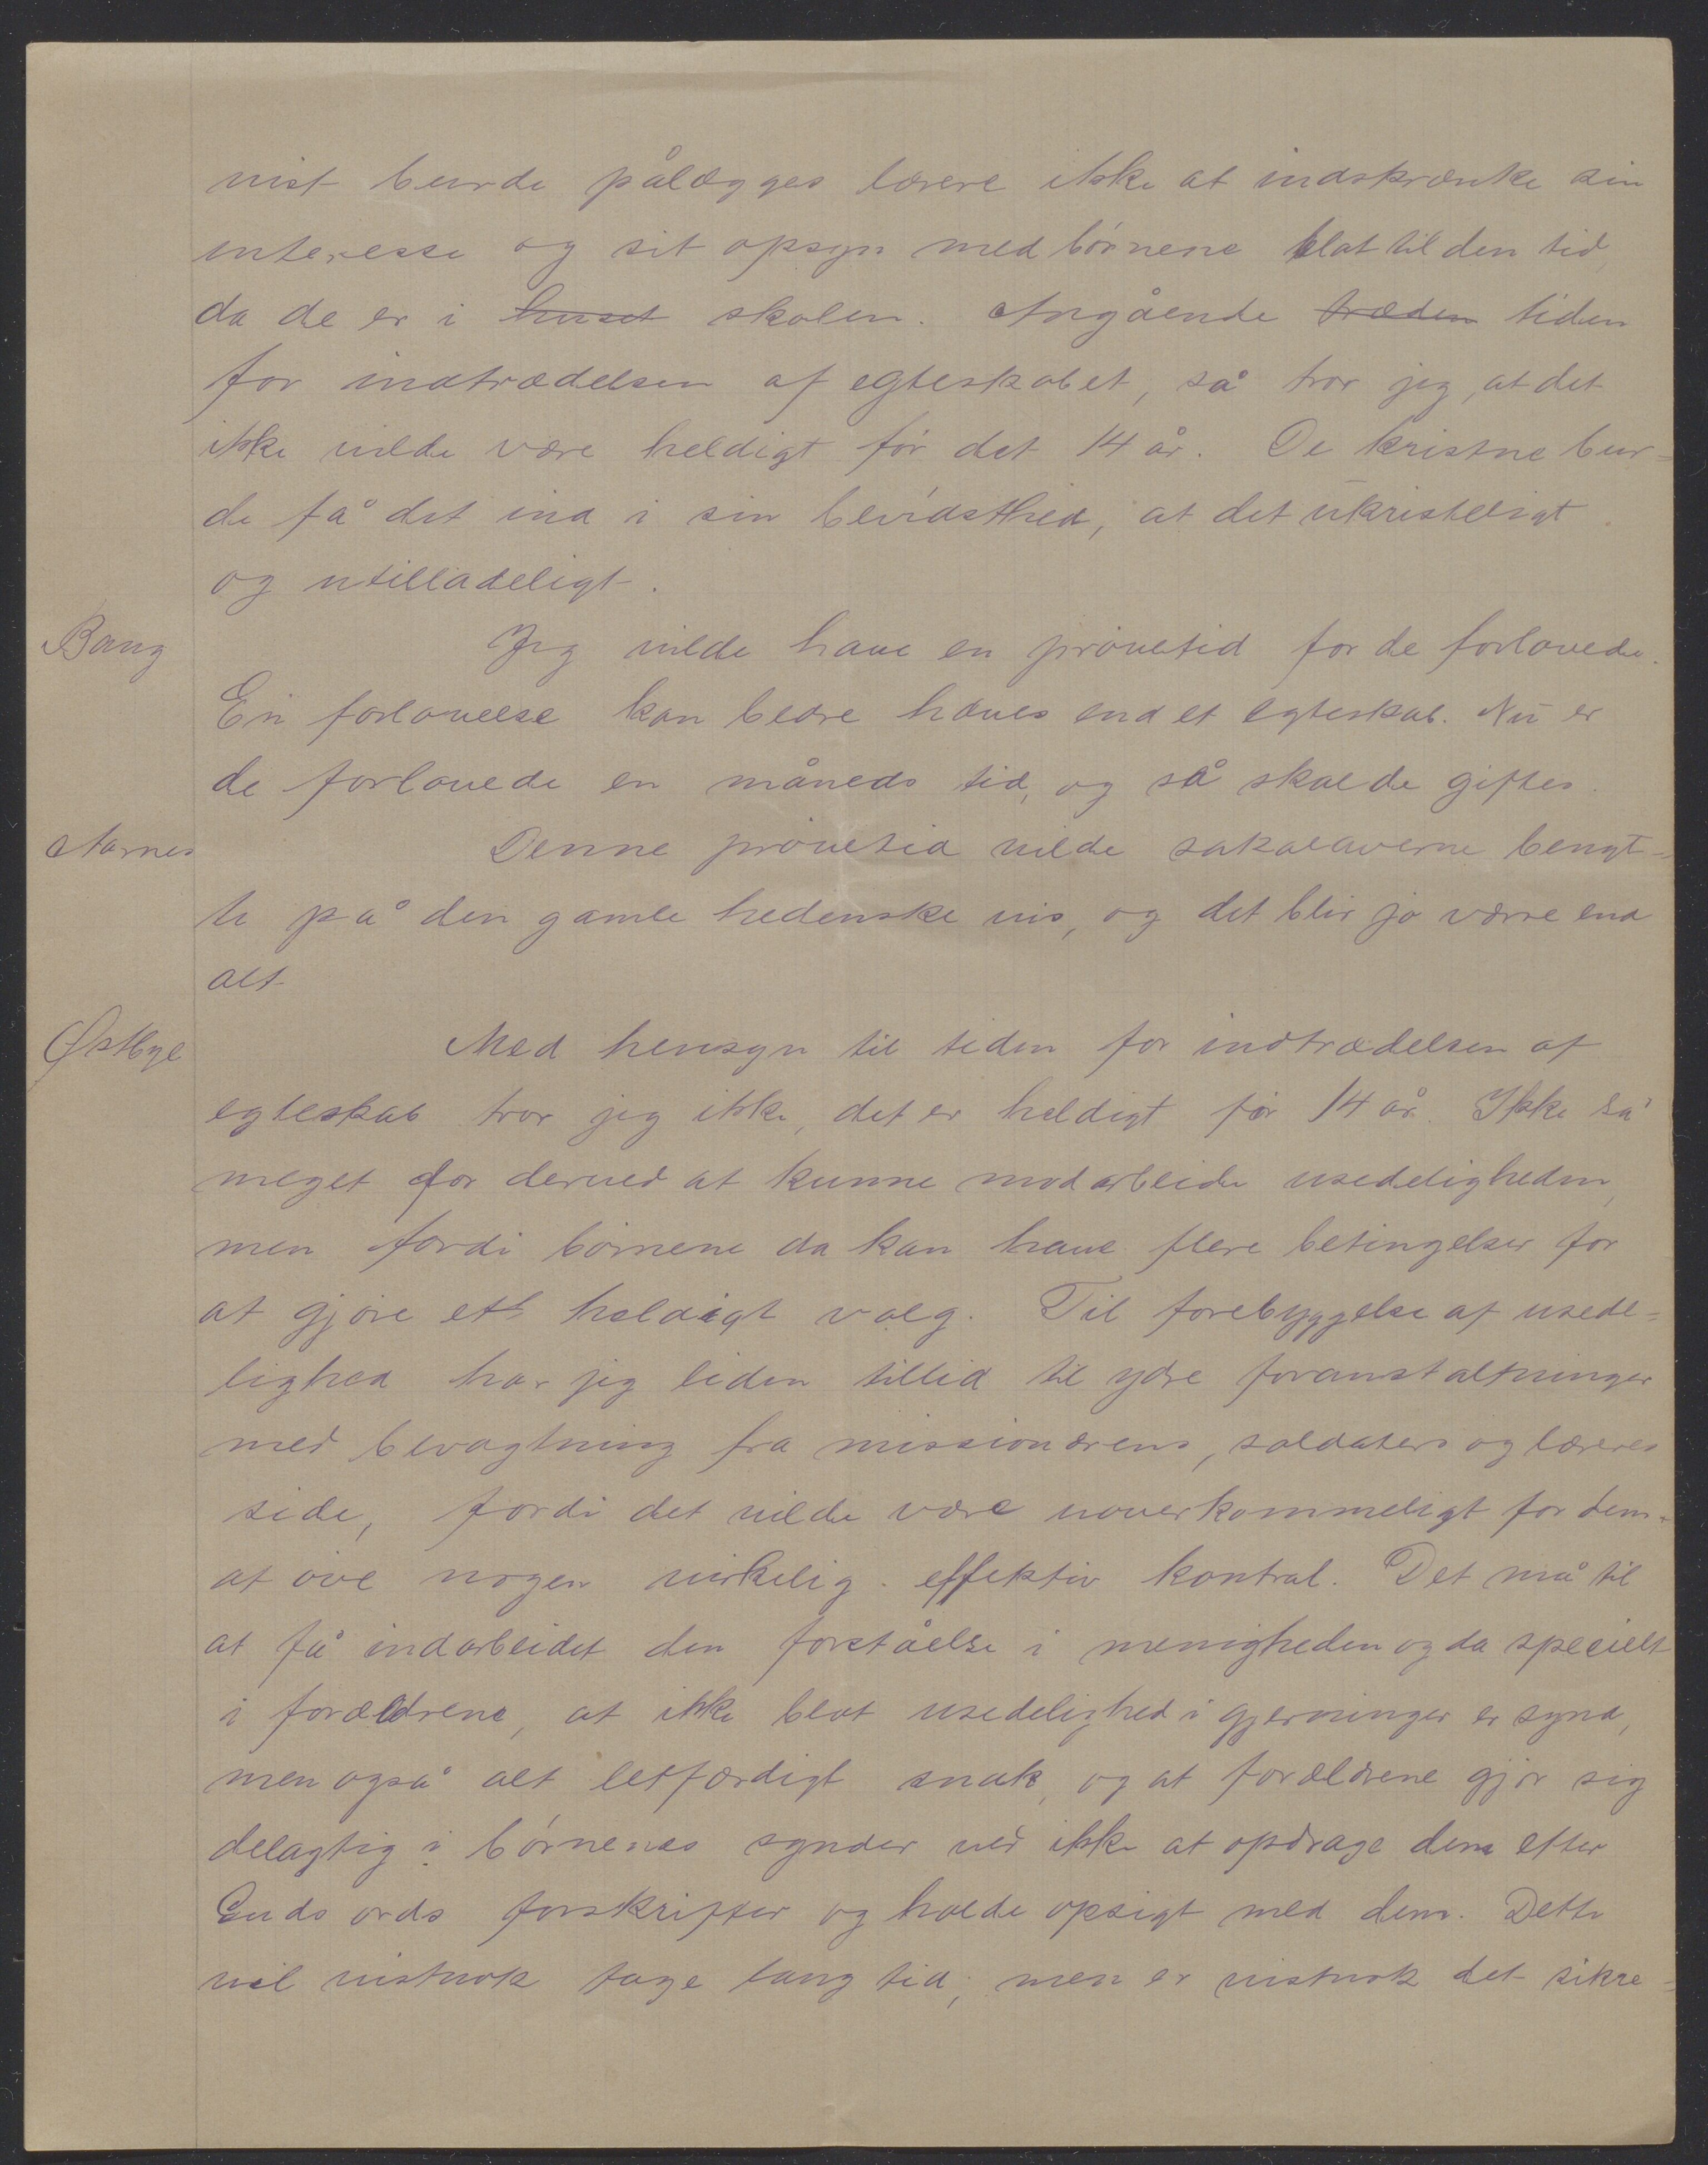 vist burde pålægges lærere ikke at indskrænke sin
interesse og sit opsyn med börnene blot til den tid,
da de er i huset skolen. Angående træden tiden
for indtrædelsen af egteskabet, så tror jeg, at det
ikke vilde være heldigt för det 14 år. De kristne bur=
de få det ind i sin bevidsthed, at det ukristeligt
og utilladeligt.
Bang Jeg vilde have en prövetid for de forlovede.
En forlovelse kan bedre hæves end et egteskab. Nu er
de forlovede en måneds tid, og så skal de giftes.
Aarnes Denne prövetid vilde sakalaverne benyt=
te på den gamle hedenske vis, og det blir jo værre end
alt
Østbye Med hensyn til tiden for indtrædelsen af
egteskab tror jeg ikke, det er heldigt för 14 år. Ikke så
meget for derved at kunne modarbeide usedeligheden,
men fordi börnene da kan have flere betingelser for
at gjöre et heldigt valg. Til forebyggelse af usede=
lighed har jeg liden tillid til ydre foranstaltninger
med bevogtning fra missionærens, soldaters og læreres
side, fordi det vilde være uoverkommeligt for dem
at öve nogen virkelig effektiv kontrol. Det må til
at få indarbeidet den forståelse i menigheden og da specielt
i forældrene, at ikke blot usedelighed i gjerninger er synd,
men også alt letfærdigt snak, og at forældrene gjör sig
delagtig i börnenes synder ved ikke at opdrage dem efter
Guds ords forskrifter og holde opsigt med dem. Dette
vil vistnok tage lang tid, men er vistnok det sikre=